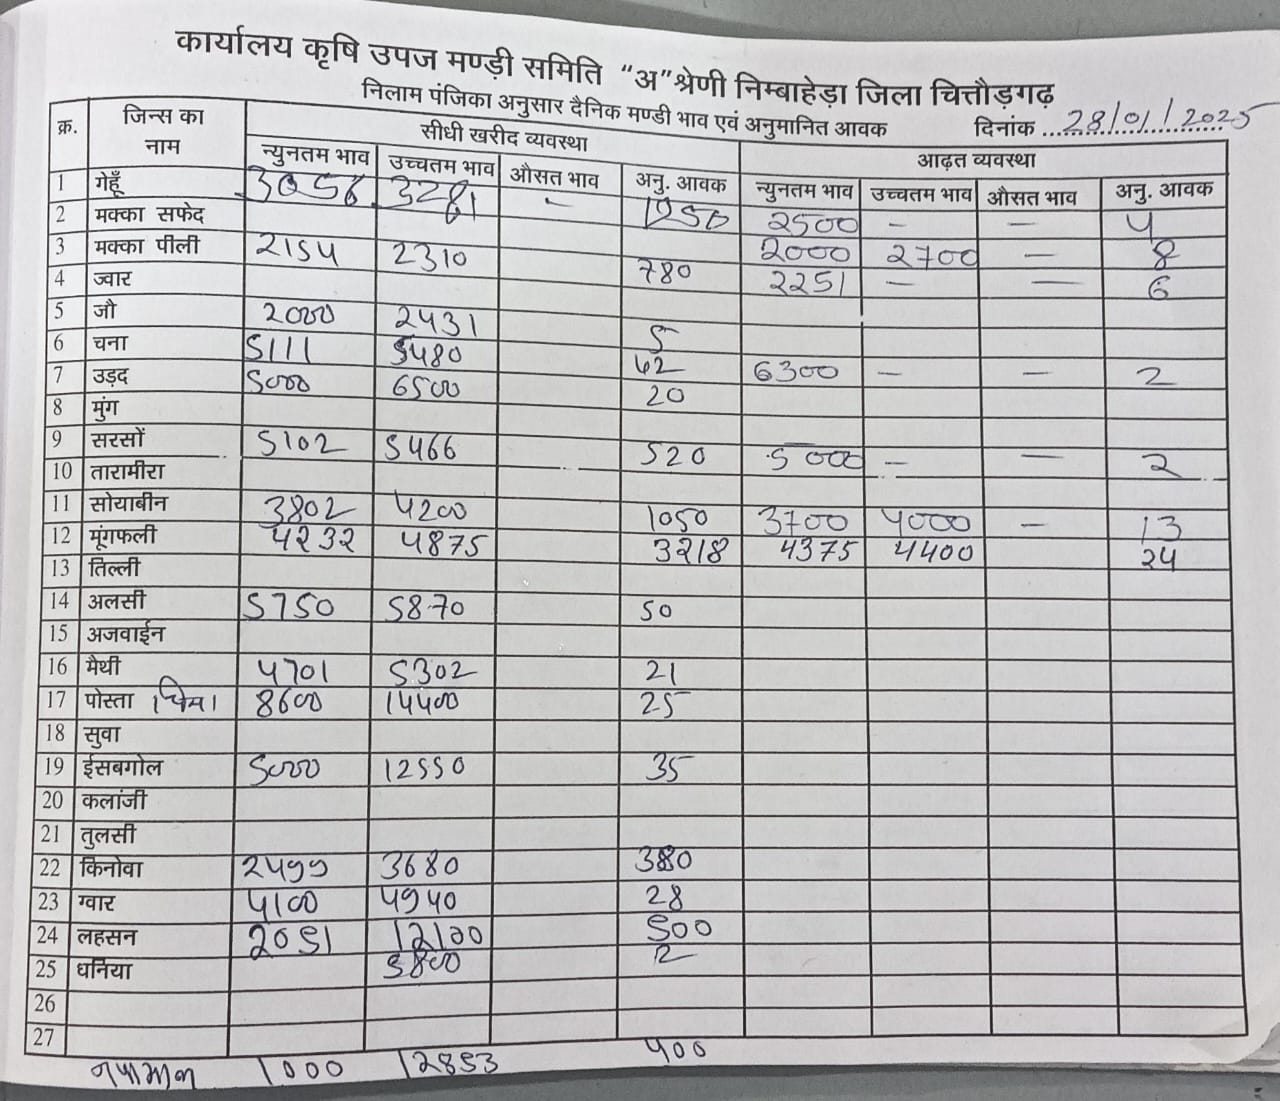 कार्यालय कृषि उपज मण्ड़ी समिति "अ" श्रेणी निम्बाहेड़ा जिला चित्तौड़गढ़
निलाम पंजिका अनुसार दैनिक मण्डी भाव एवं अनुमानित आवक दिनांक 28/01/2025
क्र. जिन्स का नाम सीधी खरीद व्यवस्था आढ़त व्यवस्था
न्युनतम भाव उच्चतम भाव औसत भाव अनु. आवक न्युनतम भाव उच्चतम भाव औसत भाव अनु. आवक
1 गेहूँ 3056 3281 -
2 मक्का सफेद 2500 - - 4
3 मक्का पीली 2154 2310 780 2000 2700 - 8
4 ज्वार 2251 - - 6
5 जौ 2000 2431 5
6 चना 5111 5480 42 6300 - - 2
7 उड़द 5000 6500 20
8 मुंग
9 सरसों 5102 5466 520 5000 - - 2
10 तारामीरा
11 सोयाबीन 3802 4200 1050 3700 4000 - 13
12 मूंगफली 4232 4875 3218 4375 4400 24
13 तिल्ली
14 अलसी 5750 5870 50
15 अजवाईन
16 मैथी 4701 5302 21
17 पोस्ता 8600 14400 25
18 सुवा
19 ईसबगोल 5000 12550 35
20 कलांजी
21 तुलसी
22 किनोवा 2499 3680 380
23 ग्वार 4100 4940 28
24 लहसन 2051 12100 500
25 धनिया 5800
26
27
नयामाल 1000 12853 400